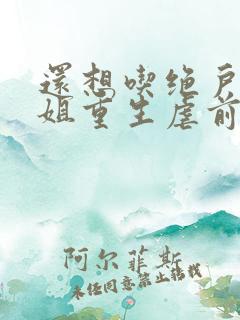 還想喫绝戶
姐重生虐前
阿尔菲斯
未经同意禁止转载